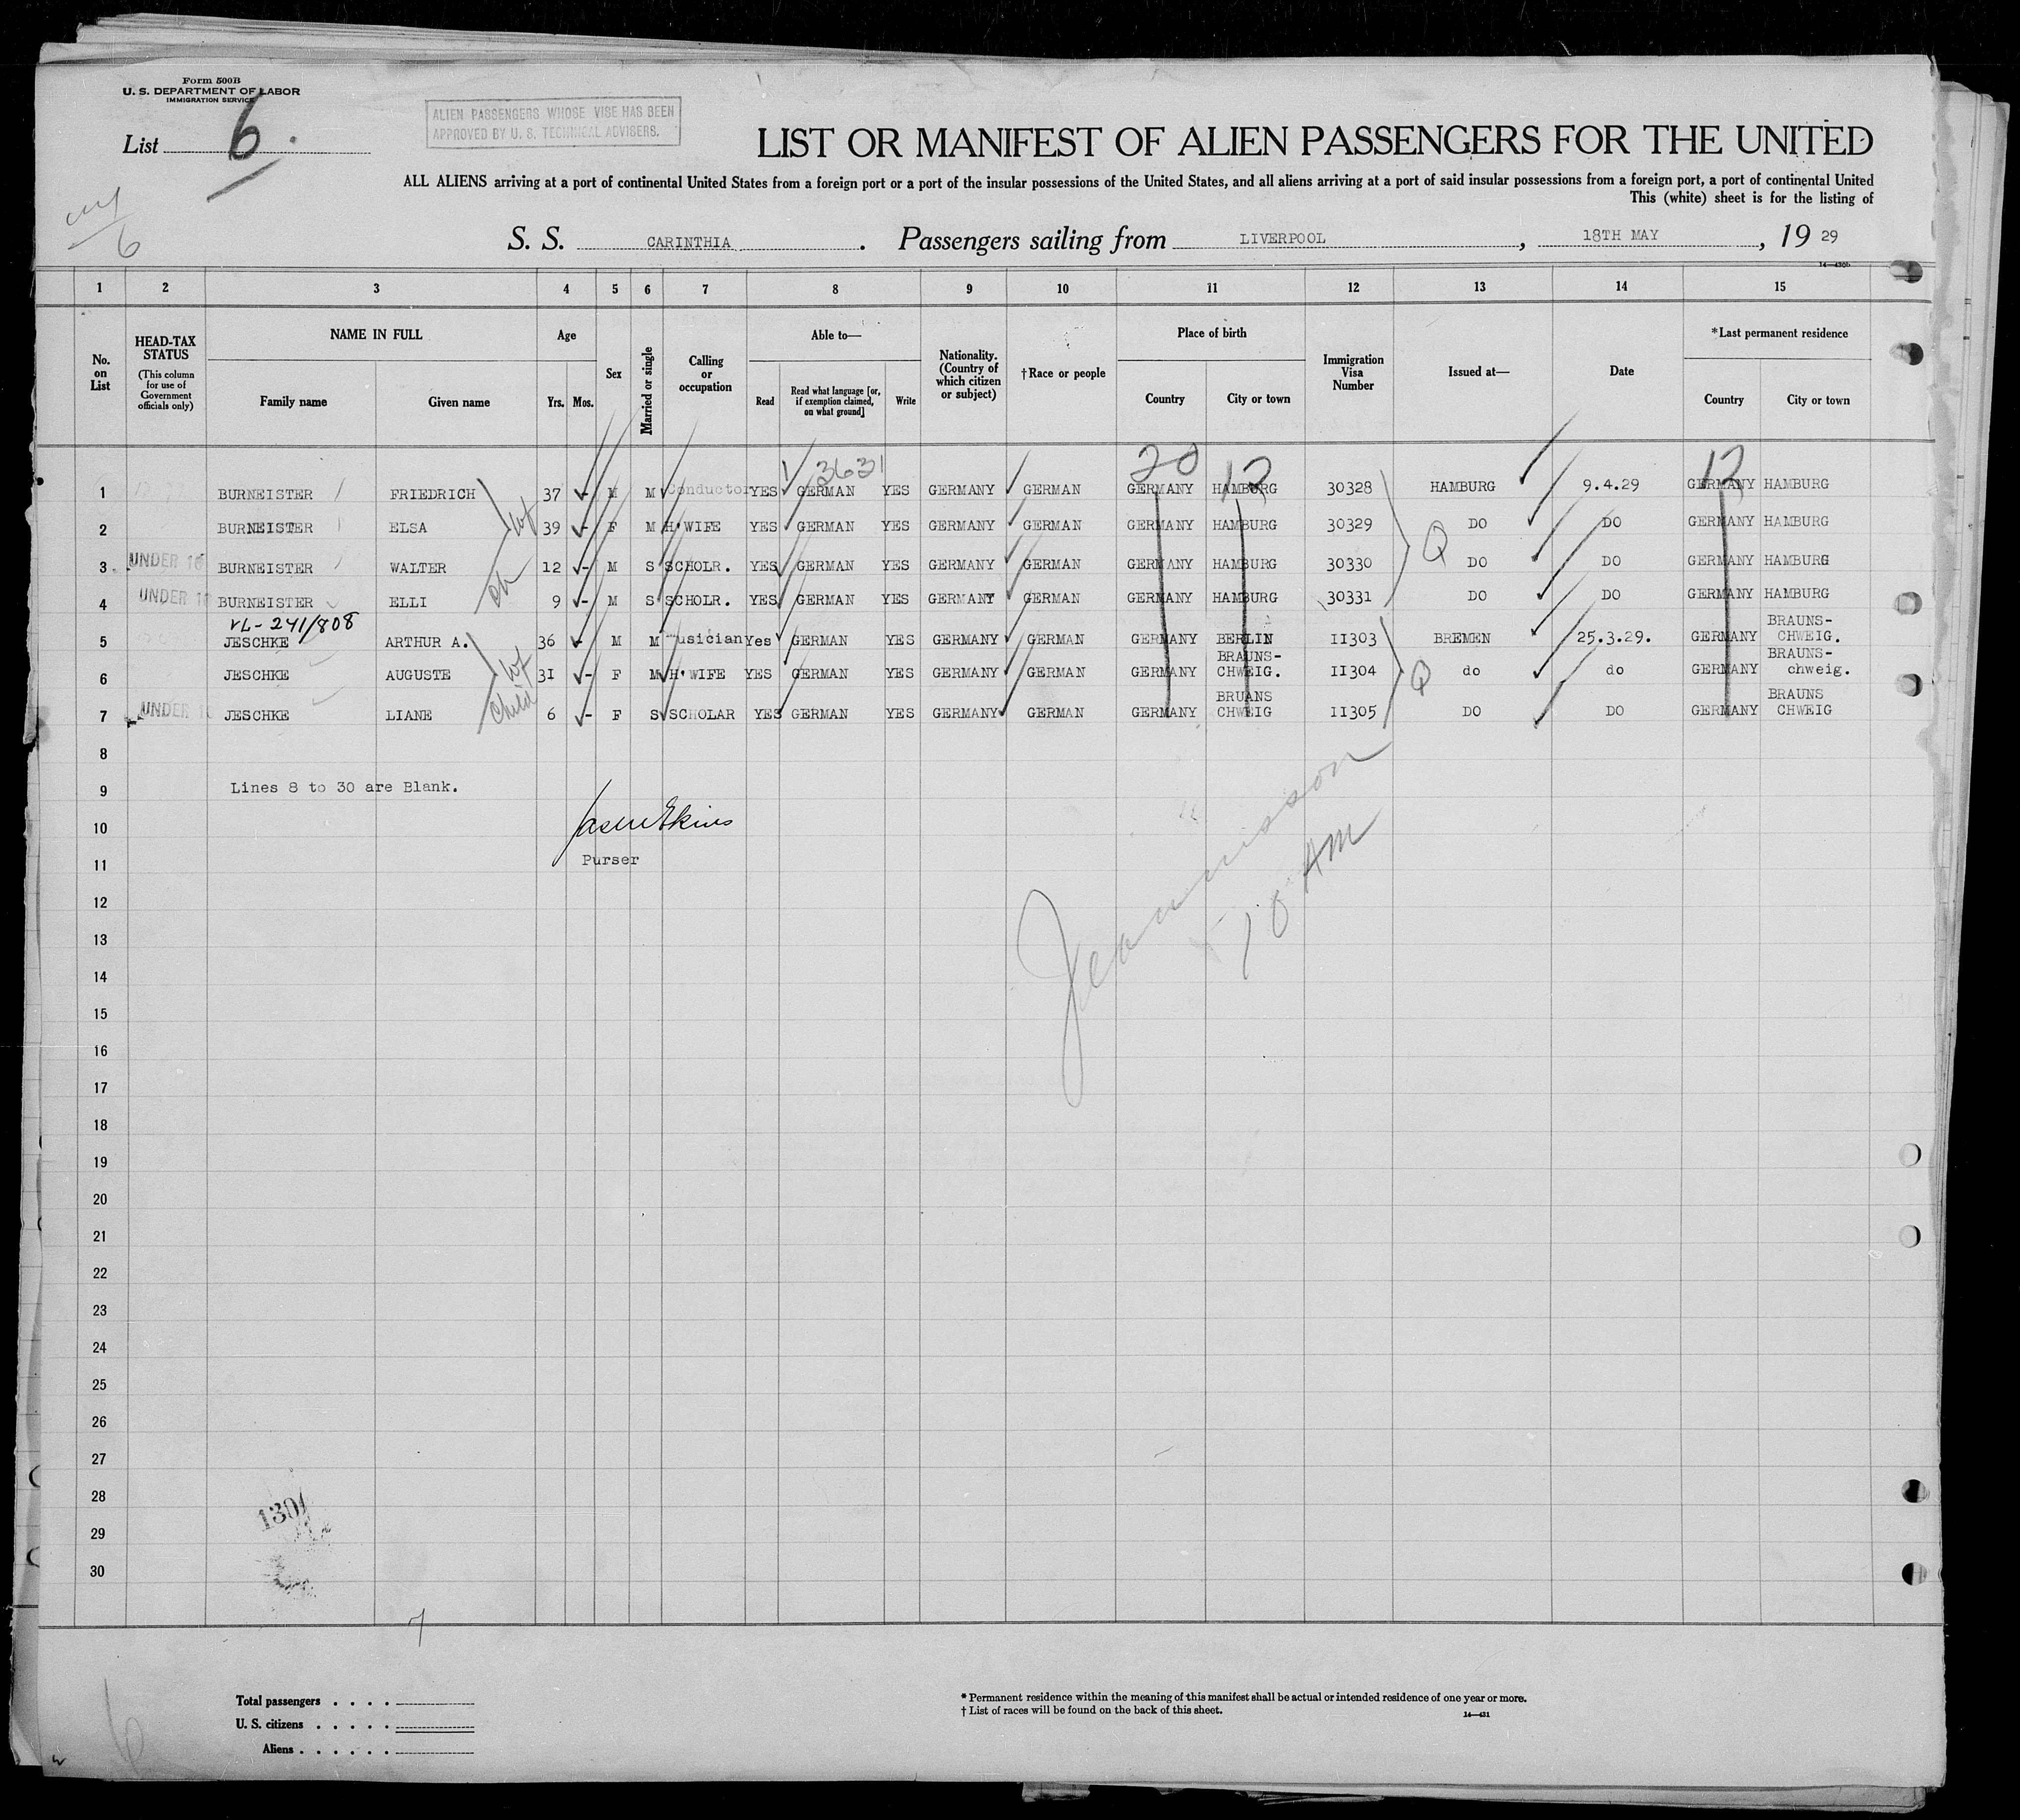 Form 500B
U. S. DEPARTMENT OF LABOR
IMMIGRATION SERVICE
List 6.
ALIEN PASSENGERS WHOSE VISE HAS BEEN
APPROVED BY U. S. TECHNICAL ADVISERS.
LIST OR MANIFEST OF ALIEN PASSENGERS FOR THE UNITED
ALL ALIENS arriving at a port of continental United States from a foreign port or a port of the insular possessions of the United States, and all aliens arriving at a port of said insular possessions from a foreign port, a port of continental United
This (white) sheet is for the listing of
6
S. S. CARINTHIA. Passengers sailing from LIVERPOOL, 18TH MAY, 19 29
1 2 3 4 5 6 7 8 9 10 11 12 13 14 15
No. on List
HEAD-TAX STATUS
(This column for use of Government officials only)
NAME IN FULL
Family name Given name
Age
Yrs. Mos.
Sex
Married or single
Calling or occupation
Able to—
Read Read what language [or, if exemption claimed, on what ground] Write
Nationality. (Country of which citizen or subject)
†Race or people
Place of birth
Country City or town
Immigration Visa Number
Issued at—
Date
*Last permanent residence
Country City or town
3631 20 12 12
1 BURNEISTER FRIEDRICH 37 - M M Conductor YES GERMAN YES GERMANY GERMAN GERMANY HAMBURG 30328 HAMBURG 9.4.29 GERMANY HAMBURG
2 BURNEISTER ELSA wf 39 - F M H'WIFE YES GERMAN YES GERMANY GERMAN GERMANY HAMBURG 30329 Q DO DO GERMANY HAMBURG
3 UNDER 16 BURNEISTER WALTER 12 - M S SCHOLR. YES GERMAN YES GERMANY GERMAN GERMANY HAMBURG 30330 DO DO GERMANY HAMBURG
4 UNDER 16 BURNEISTER ELLI ch 9 - M S SCHOLR. YES GERMAN YES GERMANY GERMAN GERMANY HAMBURG 30331 DO DO GERMANY HAMBURG
VL-241/808
5 JESCHKE ARTHUR A. 36 - M M musician Yes GERMAN YES GERMANY GERMAN GERMANY BERLIN II303 BREMEN 25.3.29. GERMANY BRAUNS-CHWEIG.
6 JESCHKE AUGUSTE wf 3I - F M H'WIFE YES GERMAN YES GERMANY GERMAN GERMANY BRAUNS-CHWEIG. II304 Q do do GERMANY BRAUNS-chweig.
7 UNDER 16 JESCHKE LIANE child 6 - F S SCHOLAR YES GERMAN YES GERMANY GERMAN GERMANY BRUANS CHWEIG II305 DO DO GERMANY BRAUNS CHWEIG
8
9 Lines 8 to 30 are Blank.
10
11 Purser
10 AM
12
13
14
15
16
17
18
19
20
21
22
23
24
25
26
27
28
29
30
1301
7
Total passengers . . . .
U. S. citizens . . . . .
Aliens . . . . . .
* Permanent residence within the meaning of this manifest shall be actual or intended residence of one year or more.
† List of races will be found on the back of this sheet.
14—431
6